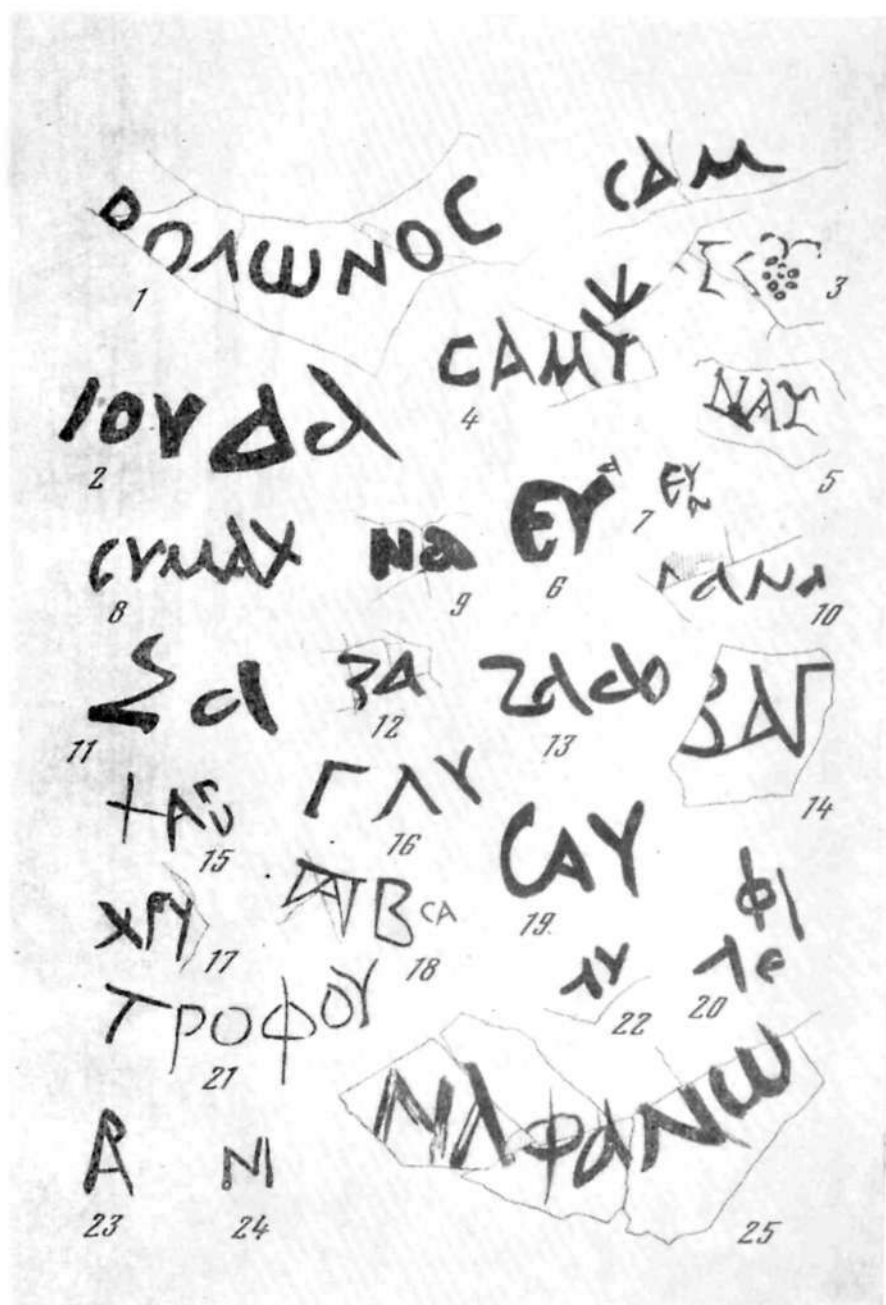 ΟΛωΝΟC
CΑΜ
1
3
CΑΜΥ
4
ΙΟΥΔΑ
2
ΝΑΥ
5
ΕΥ
6
ΕΥ
7
CΥΜΑΧ
8
ΝΑ
9
ΑΝΑ
10
ΣΑ
11
ΖΑ
12
ΖΑΔΟ
13
ΒΑΓ
14
15
ΓΛΥ
16
CΑΥ
19
ΧΡΥ
17
Β CΑ
18
ΦΙ
ΛΕ
20
ΛΥ
22
ΤΡΟΦΟΥ
21
23
Μ
24
ΜΑΦΑΝω
25